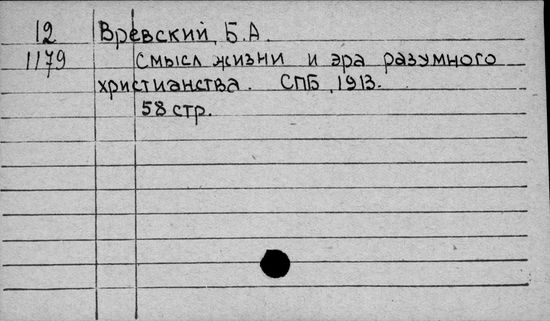 12 Вревский, Б.А.
1179 Смысл жизни и эра разумного
христианства. СПБ, 1913.
58 стр.